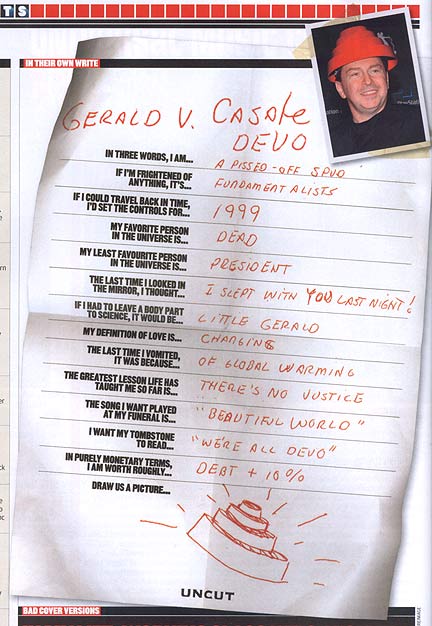 TS
IN THEIR OWN WRITE
GERALD V. CASALE
DEVO
IN THREE WORDS, I AM... A PISSED-OFF SPUD
IF I'M FRIGHTENED OF
ANYTHING, IT'S... FUNDAMENTALISTS
IF I COULD TRAVEL BACK IN TIME,
I'D SET THE CONTROLS FOR... 1999
MY FAVORITE PERSON
IN THE UNIVERSE IS... DEAD
MY LEAST FAVOURITE PERSON
IN THE UNIVERSE IS... PRESIDENT
THE LAST TIME I LOOKED IN
THE MIRROR, I THOUGHT... I SLEPT WITH YOU LAST NIGHT!
IF I HAD TO LEAVE A BODY PART
TO SCIENCE, IT WOULD BE... LITTLE GERALD
MY DEFINITION OF LOVE IS... CHANGING
THE LAST TIME I VOMITED,
IT WAS BECAUSE... OF GLOBAL WARMING
THE GREATEST LESSON LIFE HAS
TAUGHT ME SO FAR IS... THERE'S NO JUSTICE
THE SONG I WANT PLAYED
AT MY FUNERAL IS... "BEAUTIFUL WORLD"
I WANT MY TOMBSTONE
TO READ... "WE'RE ALL DEVO"
IN PURELY MONETARY TERMS,
I AM WORTH ROUGHLY... DEBT + 10%
DRAW US A PICTURE...
UNCUT
BAD COVER VERSIONS